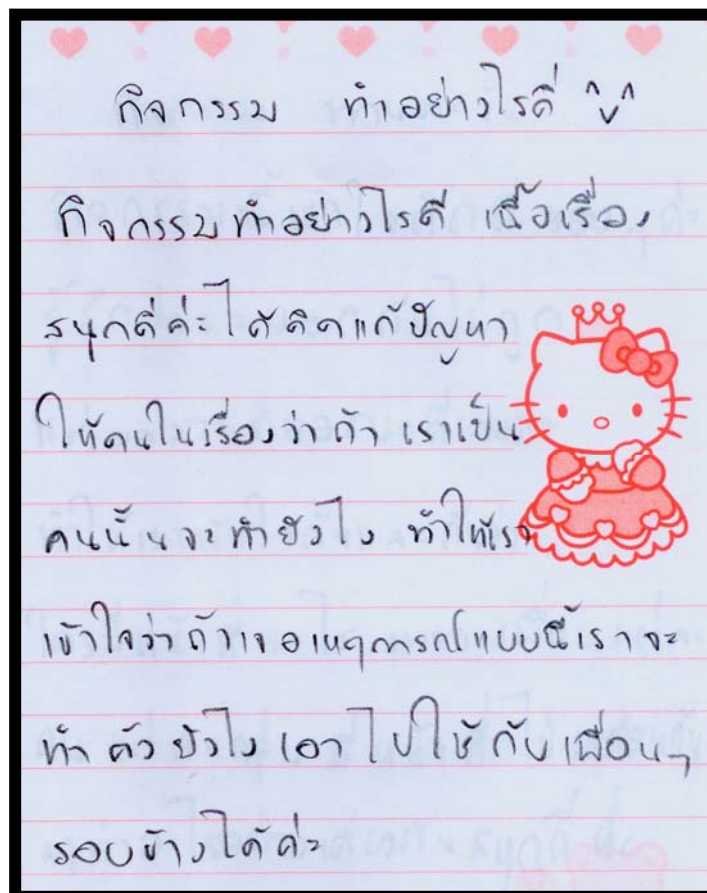 กิจกรรม ทำอย่างไรดี ^v^
กิจกรรมทำอย่างไรดี เนื้อเรื่อง
สนุกดีค่ะ ได้คิดแก้ปัญหา
ให้คนในเรื่องว่าถ้า เราเป็น
คนนั้นจะทำยังไง ทำให้เรา
เข้าใจว่าถ้าเจอเหตุการณ์แบบนี้เราจะ
ทำตัวยังไง เอาไปใช้กับเพื่อนๆ
รอบข้างได้ค่ะ